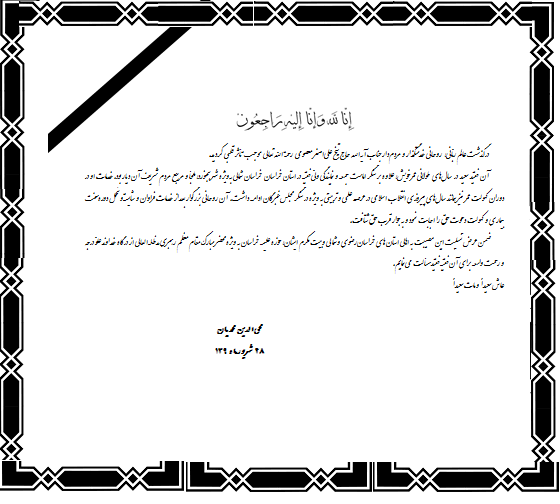 إنا لله وإنا إليه راجعون
درگذشت عالم ربانی، روحانی خدمتگذار و مردم‌دار جناب آیه الله حاج شیخ علی اصغر معصومی رحمة الله تعالی موجب تاثر قلبی گردید.
آن فقیه سعید در سال‌های طولانی عمر خویش علاوه بر سنگر امامت جمعه و نمایندگی ولی فقیه در استان خراسان خراسان شمالی به ویژه شهر بجنورد ملجأ و مرجع مردم شریف آن دیار بود خدمات او در
دوران کهولت عمر نیز مانند سال‌های پیروزی انقلاب اسلامی در عرصه علمی و تربیتی به ویژه در سنگر مجلس خبرگان ادامه داشت. آن روحانی بزرگوار بعد از خدمات فراوان و شایسته و تحمل دوره سخت
بیماری و کهولت دعوت حق را اجابت نمود و به جوار قرب حق شتافت.
ضمن عرض تسلیت این مصیبت به اهالی استان های خراسان رضوی و شمالی و بیت مکرم ایشان، حوزه علمیه خراسان به ویژه محضر مبارک مقام معظم رهبری مدظله العالی از درگاه خداوند علو درجه
و رحمت واسعه برای آن فقیه فقید مسالت می نمایم.
عاش سعیداً و مات سعیداً
محی الدین محمدیان
۲۸ شهریورماه ۱۳۹